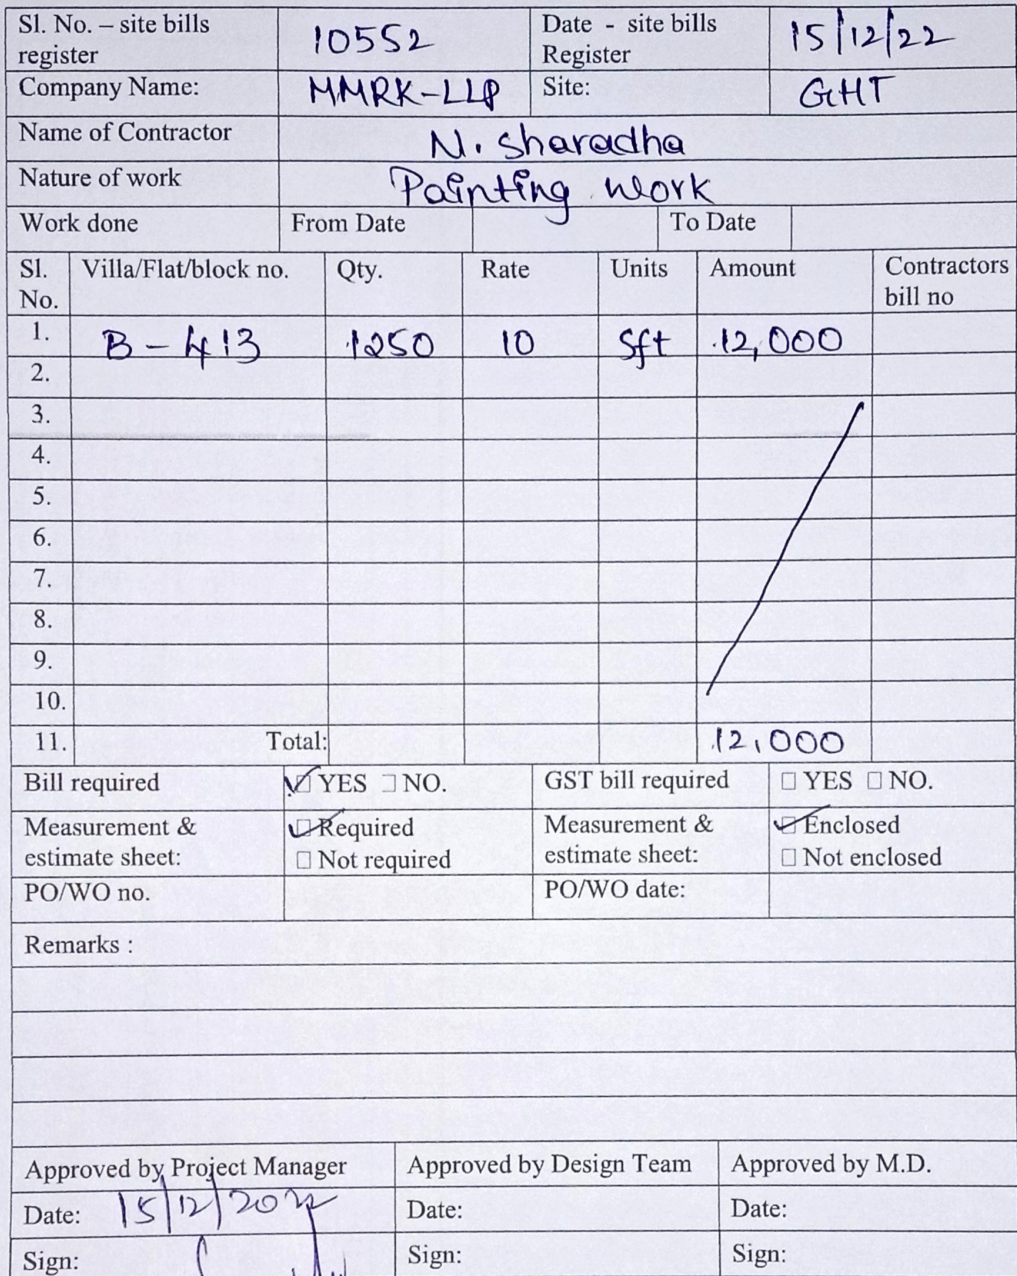 Sl. No. – site bills register 10552 Date - site bills Register 15/12/22
Company Name: MMRK-LLP Site: GHT
Name of Contractor N. Sharadha
Nature of work Painting work
Work done From Date To Date
Sl. No. Villa/Flat/block no. Qty. Rate Units Amount Contractors bill no
1. B-413 1250 10 Sft 12,000
2.
3.
4.
5.
6.
7.
8.
9.
10.
11. Total: 12,000
Bill required ☑ YES ☐ NO. GST bill required ☐ YES ☐ NO.
Measurement & estimate sheet: ☑ Required ☐ Not required Measurement & estimate sheet: ☑ Enclosed ☐ Not enclosed
PO/WO no. PO/WO date:
Remarks :
Approved by Project Manager Approved by Design Team Approved by M.D.
Date: 15/12/2022 Date: Date:
Sign: Sign: Sign: